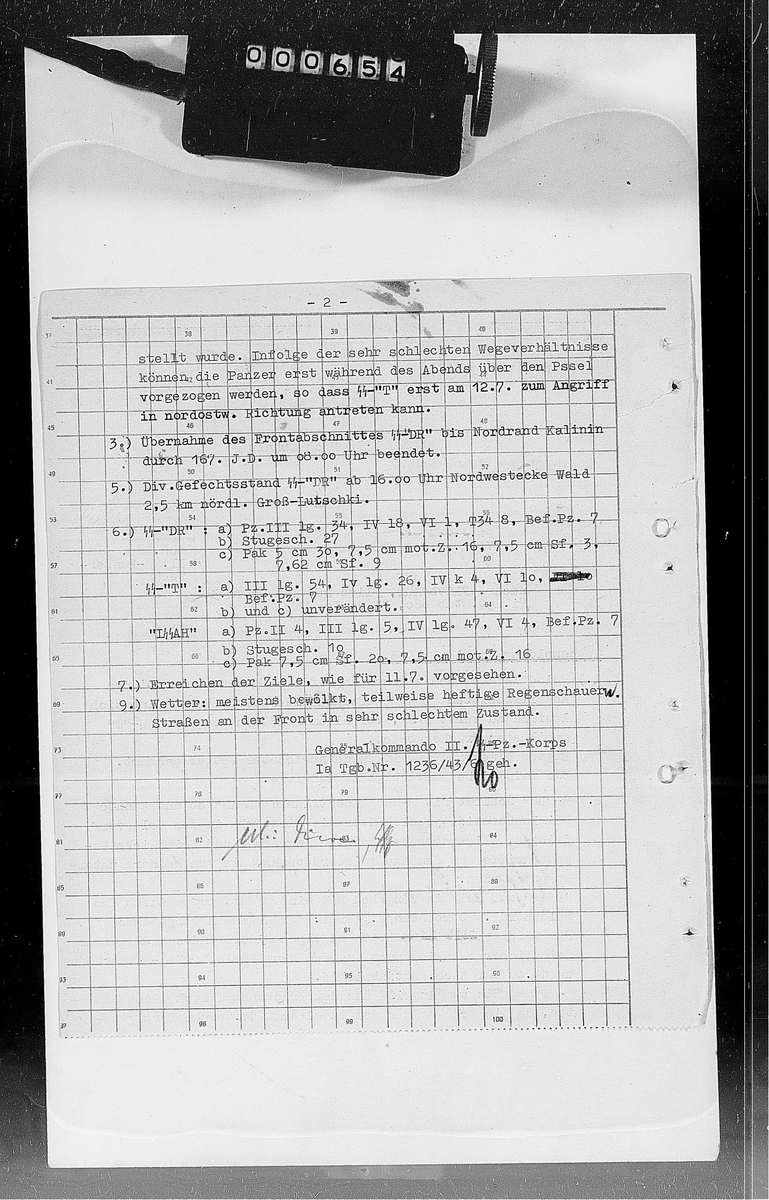 000654
- 2 -
37 38 39 40
stellt wurde. Infolge der sehr schlechten Wegeverhältnisse
können die Panzer erst während des Abends über den Pssel
41
vorgezogen werden, so dass ᛋᛋ-"T" erst am 12.7. zum Angriff
in nordostw. Richtung antreten kann.
45 46 47 48
3.) Übernahme des Frontabschnittes ᛋᛋ-"DR" bis Nordrand Kalinin
durch 167. J.D. um 08.00 Uhr beendet.
49 50 51 52
5.) Div.Gefechtsstand ᛋᛋ-"DR" ab 16.00 Uhr Nordwestecke Wald
2,5 km nördl. Groß-Lutschki.
53 54 55
6.) ᛋᛋ-"DR" : a) Pz.III lg. 34, IV 18, VI 1, T34 8, Bef.Pz. 7
b) Stugesch. 27
c) Pak 5 cm 30, 7,5 cm mot.Z. 16, 7,5 cm Sf. 3,
57 58 60
7,62 cm Sf. 9
ᛋᛋ-"T" : a) III lg. 54, Iv lg. 26, IV k 4, VI 10,
Bef.Pz. 7
61 62 64
b) und c) unverändert.
"LᛋᛋAH" a) Pz.II 4, III lg. 5, IV lg. 47, VI 4, Bef.Pz. 7
b) Stugesch. 10
65 66
c) Pak 7,5 cm Sf. 20, 7,5 cm mot.Z. 16
7.) Erreichen der Ziele, wie für 11.7. vorgesehen.
69
9.) Wetter: meistens bewölkt, teilweise heftige Regenschauer
Straßen an der Front in sehr schlechtem Zustand.
73 74
Generalkommando II. ᛋᛋ-Pz.-Korps
Ia Tgb.Nr. 1236/43/ geh.
77 78 79 80
81 82 83 84
85 86 87 88
89 90 91 92
93 94 95 96
97 98 99 100